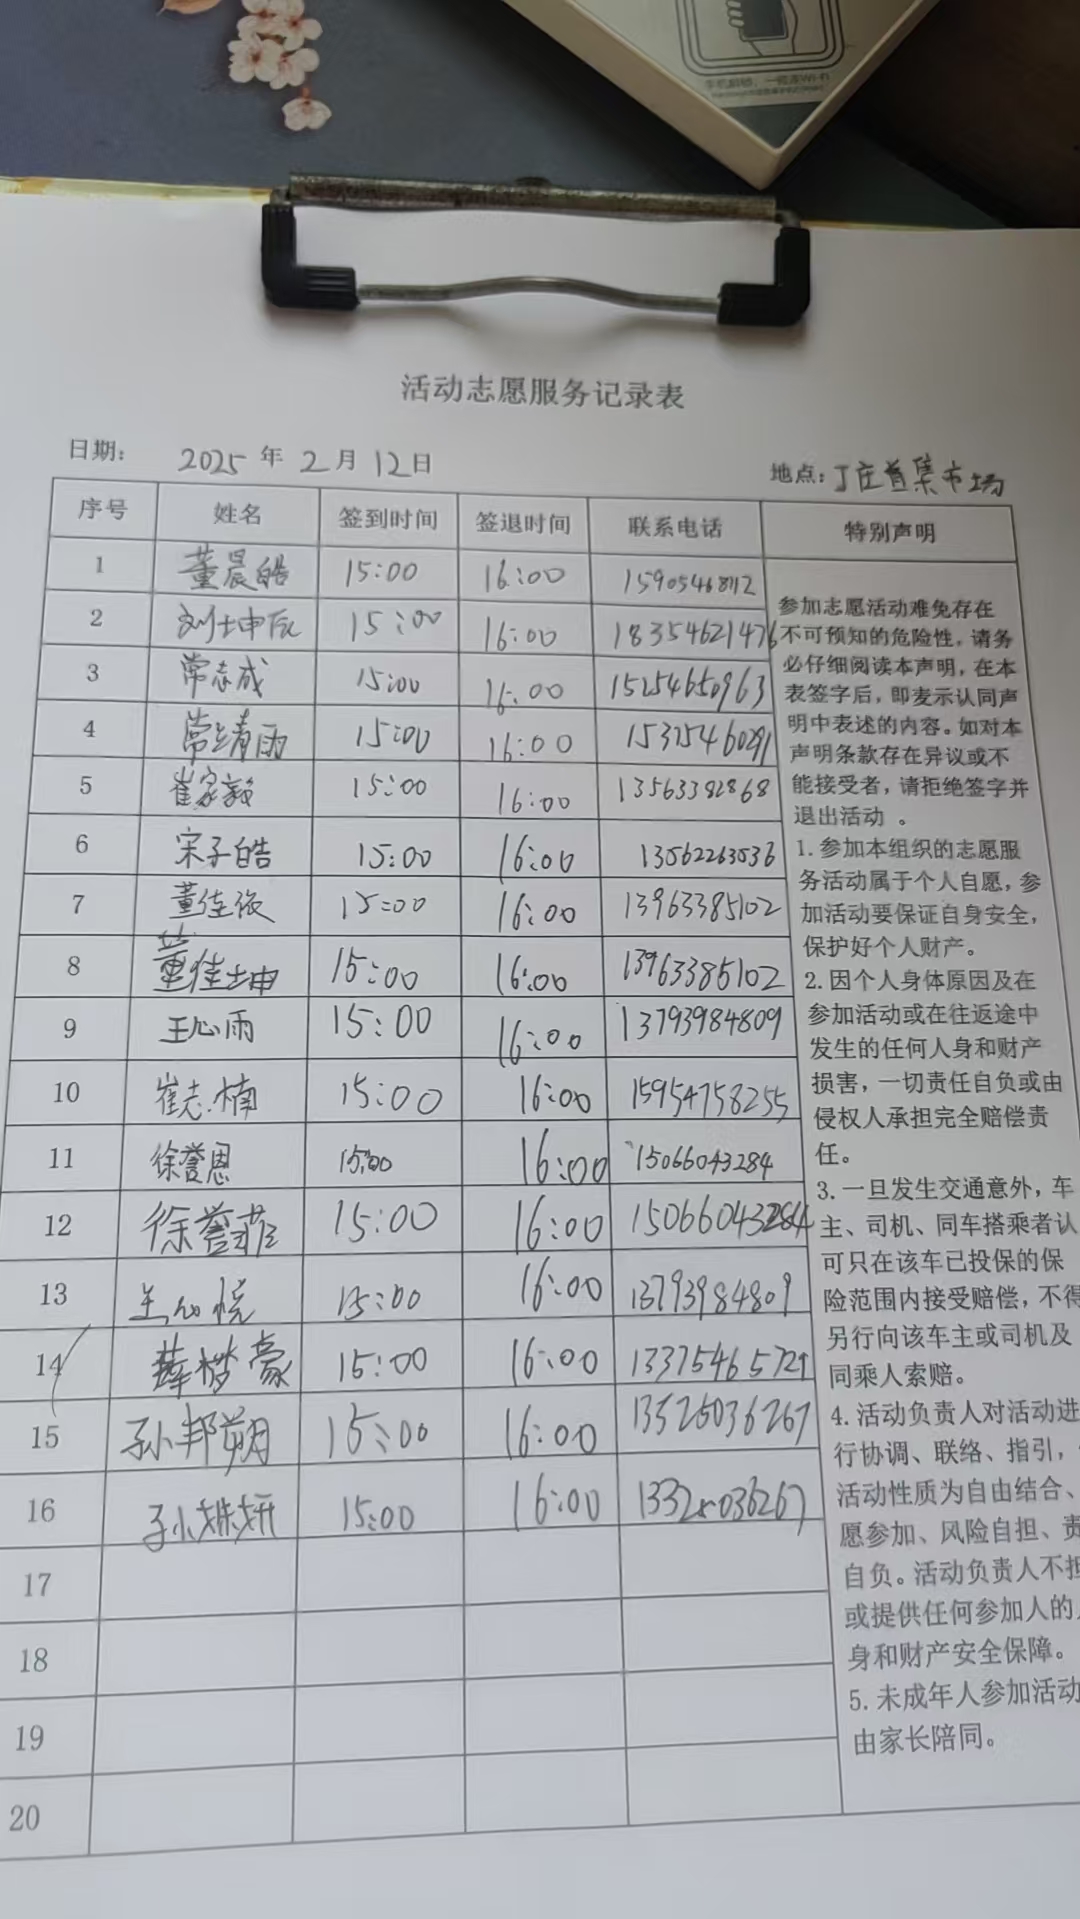 活动志愿服务记录表
日期： 2025 年 2 月 12 日
地点：丁庄首集市场
序号 姓名 签到时间 签退时间 联系电话 特别声明
1 董晨皓 15:00 16:00
2 15:00 16:00 18354621476
3 常志成 15:00 16:00 15254650963
4 常靖雨 15:00 16:00
5 崔家毅 15:00 16:00 13563382868
6 宋子皓 15:00 16:00 13562263536
7 15:00 16:00 13963385102
8 董佳坤 15:00 16:00 13963385102
9 王心雨 15:00 16:00 13793984809
10 崔志楠 15:00 16:00 15954758255
11 徐誉恩 15:00 16:00 15066043284
12 徐誉菲 15:00 16:00 15066043284
13 王心悦 15:00 16:00 13793984809
14 薛梦豪 15:00 16:00 13375465729
15 孙邦朔 15:00 16:00
16 孙姝妍 15:00 16:00
17
18
19
20
参加志愿活动难免存在
不可预知的危险性，请务
必仔细阅读本声明，在本
表签字后，即麦示认同声
明中表述的内容。如对本
声明条款存在异议或不
能接受者，请拒绝签字并
退出活动 。
1. 参加本组织的志愿服
务活动属于个人自愿，参
加活动要保证自身安全，
保护好个人财产。
2. 因个人身体原因及在
参加活动或在往返途中
发生的任何人身和财产
损害，一切责任自负或由
侵权人承担完全赔偿责
任。
3. 一旦发生交通意外，车
主、司机、同车搭乘者认
可只在该车已投保的保
险范围内接受赔偿，不得
另行向该车主或司机及
同乘人索赔。
4. 活动负责人对活动进
行协调、联络、指引，
活动性质为自由结合、
愿参加、风险自担、责
自负。活动负责人不担
或提供任何参加人的人
身和财产安全保障。
5. 未成年人参加活动
由家长陪同。